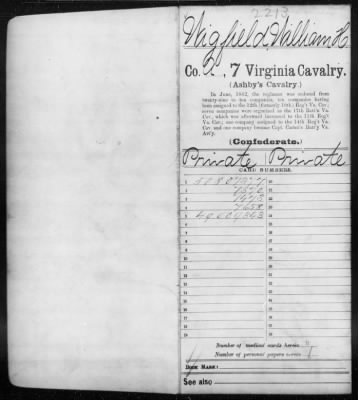 2213
Wigfield, William H
Co. , 7 Virginia Cavalry.
(Ashby's Cavalry.)
In June, 1862, the regiment was reduced from
twenty-nine to ten companies, ten companies having
been assigned to the 12th (formerly 10th) Reg't Va. Cav.;
seven companies were organized as the 17th Batt'n Va.
Cav., which was afterward increased to the 11th Reg't
Va. Cav.; one company assigned to the 14th Reg't Va.
Cav. and one company became Capt. Chew's Batt'y Va.
Art'y.
(Confederate.)
Private Private
CARD NUMBERS.
1
2
3
4
5
6
7
8
9
10
11
12
13
14
15
16
17
18
19
Number of medical cards herein
Number of personal papers herein 1
BOOK MARK:
See also